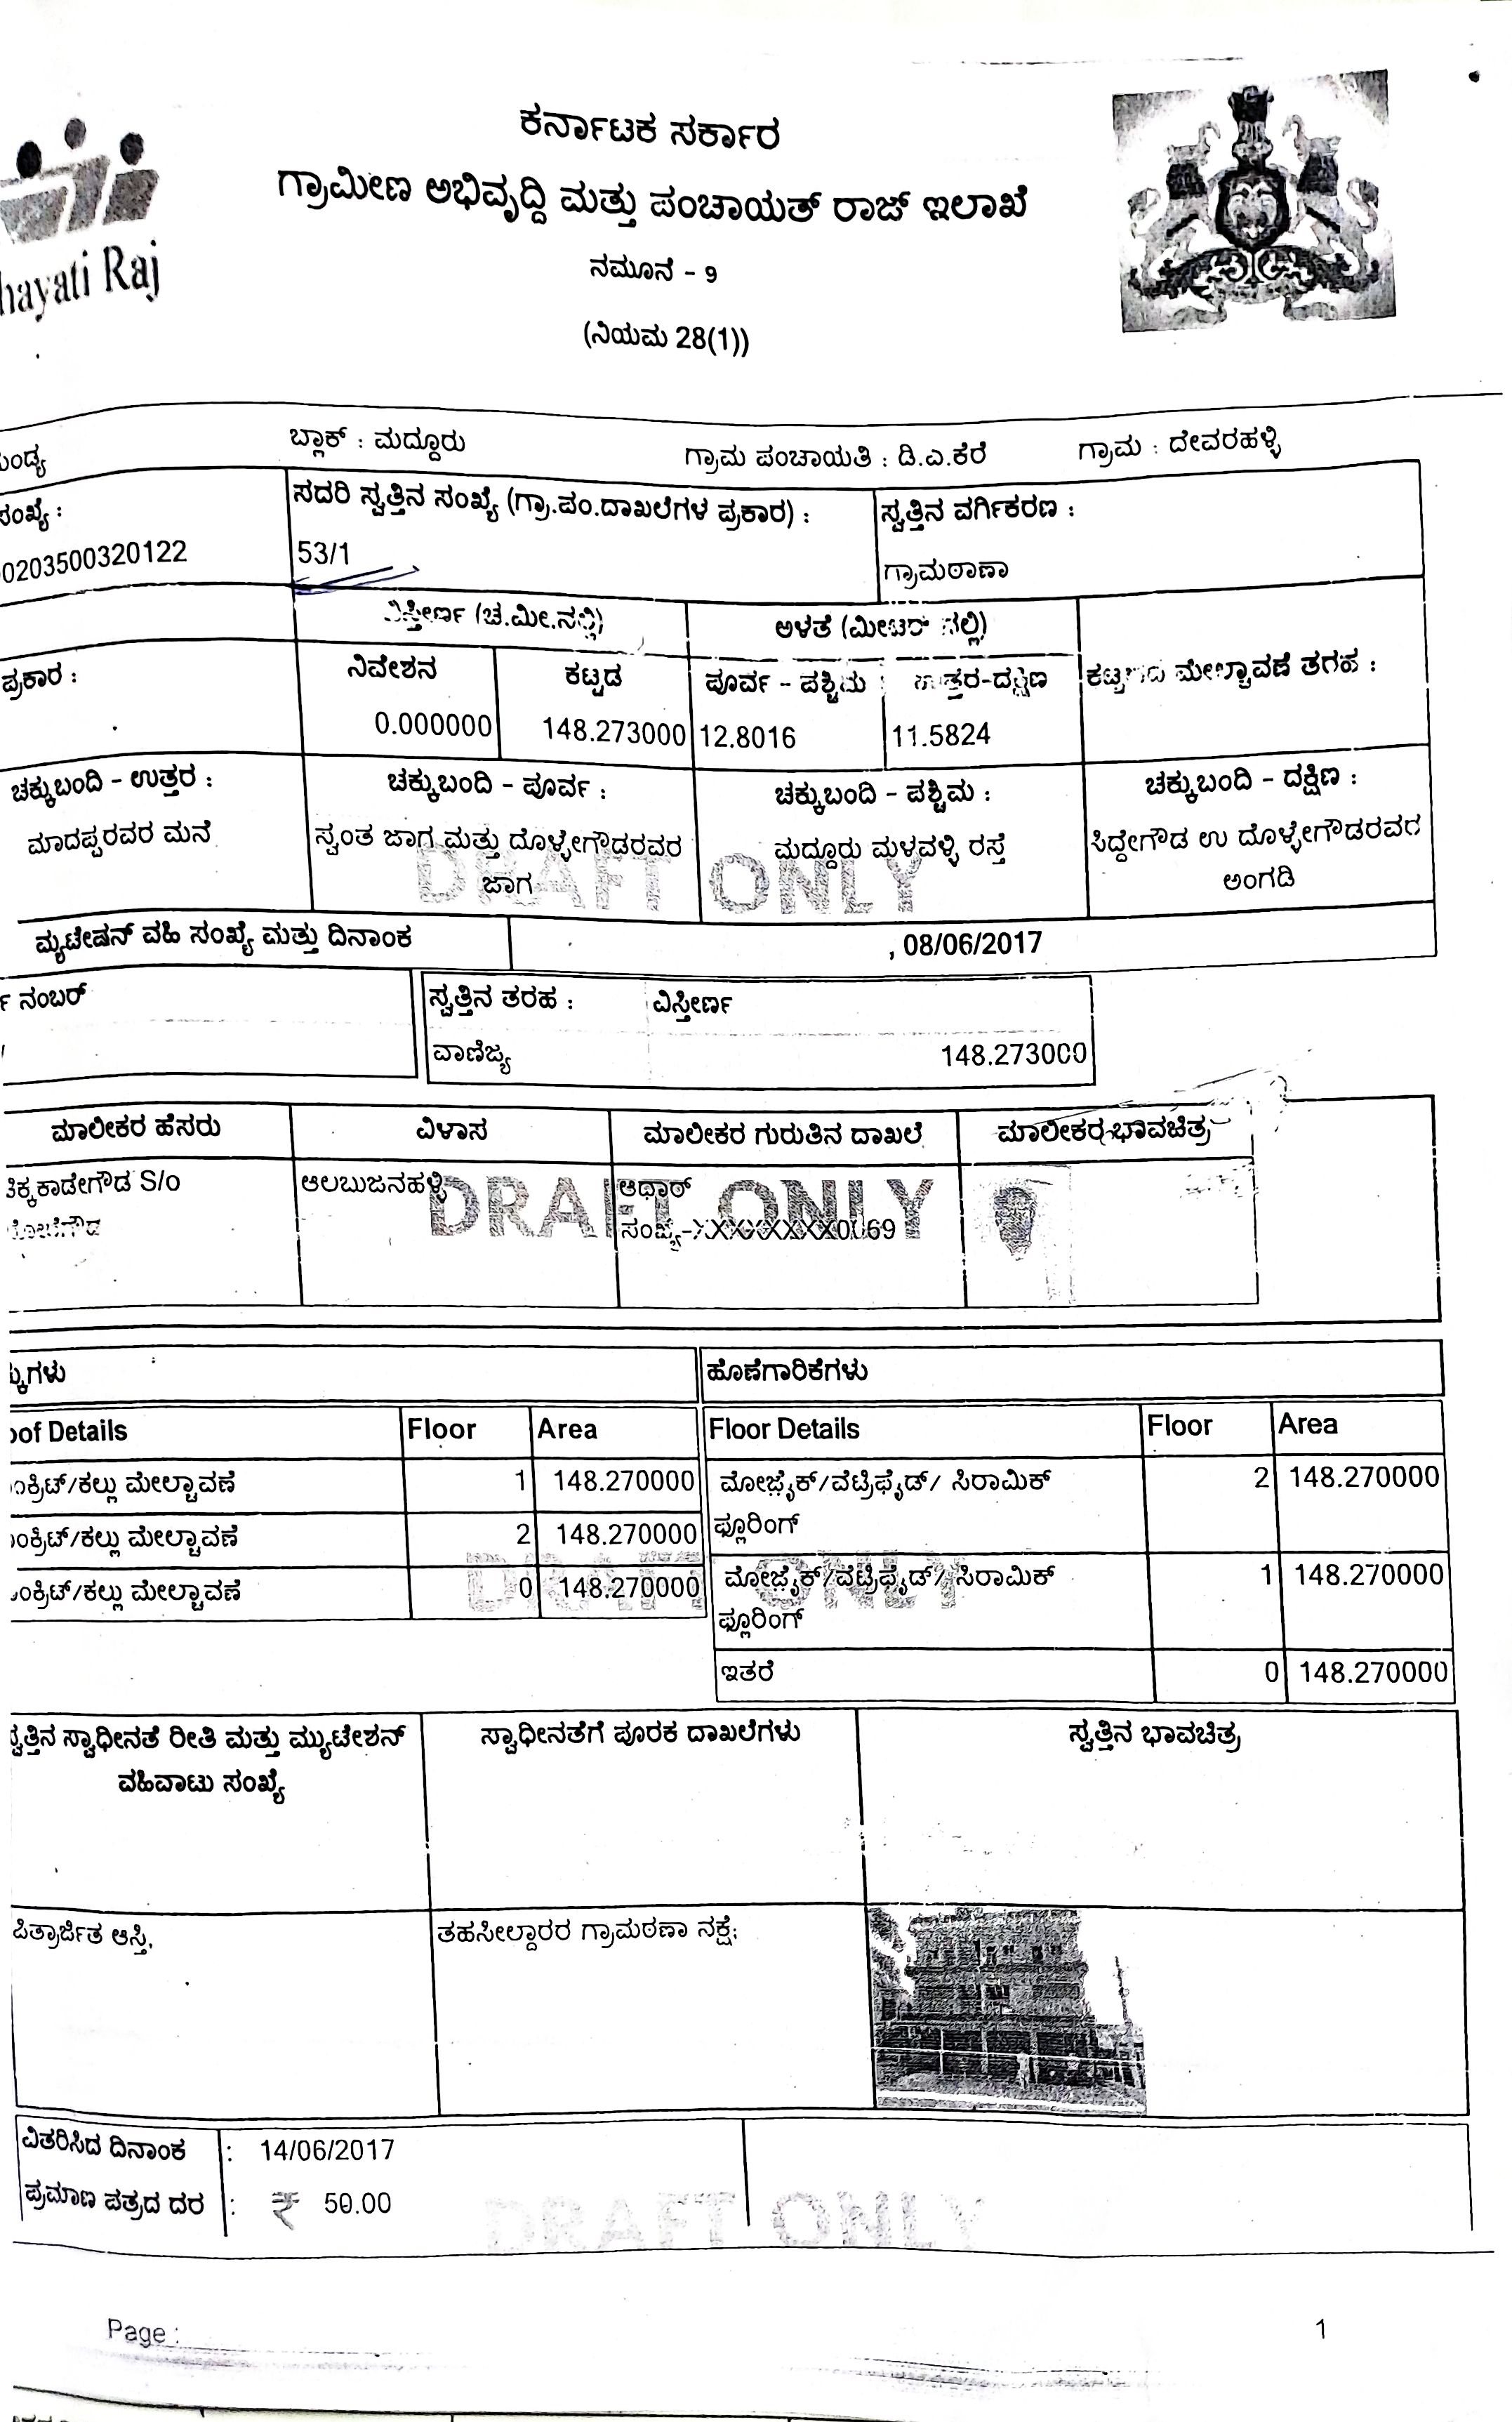 ಕರ್ನಾಟಕ ಸರ್ಕಾರ
ಗ್ರಾಮೀಣ ಅಭಿವೃದ್ದಿ ಮತ್ತು ಪಂಚಾಯತ್ ರಾಜ್ ಇಲಾಖೆ
hayati Raj
ನಮೂನೆ - 9
(ನಿಯಮ 28(1))
ಬ್ಲಾಕ್ : ಮದ್ದೂರು ಗ್ರಾಮ ಪಂಚಾಯತಿ : ಡಿ.ಎ.ಕೆರೆ ಗ್ರಾಮ : ದೇವರಹಳ್ಳಿ
ಸಂಖ್ಯೆ : ಸದರಿ ಸ್ವತ್ತಿನ ಸಂಖ್ಯೆ (ಗ್ರಾ.ಪಂ.ದಾಖಲೆಗಳ ಪ್ರಕಾರ) : ಸ್ವತ್ತಿನ ವರ್ಗಿಕರಣ :
00203500320122 53/1 ಗ್ರಾಮಠಾಣಾ
ವಿಸ್ತೀರ್ಣ (ಚ.ಮೀ.ನಲ್ಲಿ) ಅಳತೆ (ಮೀಟರ್ ನಲ್ಲಿ)
ಪ್ರಕಾರ : ನಿವೇಶನ ಕಟ್ಟಡ ಪೂರ್ವ - ಪಶ್ಚಿಮ ಉತ್ತರ-ದಕ್ಷಿಣ ಕಟ್ಟಡದ ಮೇಲ್ಚಾವಣೆ ತಗಹ :
0.000000 148.273000 12.8016 11.5824
ಚಕ್ಕುಬಂದಿ - ಉತ್ತರ : ಚಕ್ಕುಬಂದಿ - ಪೂರ್ವ : ಚಕ್ಕುಬಂದಿ - ಪಶ್ಚಿಮ : ಚಕ್ಕುಬಂದಿ - ದಕ್ಷಿಣ :
ಮಾದಪ್ಪರವರ ಮನೆ ಸ್ವಂತ ಜಾಗ ಮತ್ತು ದೊಳ್ಳೇಗೌಡರವರ ಮದ್ದೂರು ಮಳವಳ್ಳಿ ರಸ್ತೆ ಸಿದ್ದೇಗೌಡ ಉ ದೊಳ್ಳೇಗೌಡರವರ
ಜಾಗ ಅಂಗಡಿ
DRAFT ONLY
ಮ್ಯಟೇಷನ್ ವಹಿ ಸಂಖ್ಯೆ ಮತ್ತು ದಿನಾಂಕ , 08/06/2017
ನಂಬರ್ ಸ್ವತ್ತಿನ ತರಹ : ವಿಸ್ತೀರ್ಣ
ವಾಣಿಜ್ಯ 148.273000
ಮಾಲೀಕರ ಹೆಸರು ವಿಳಾಸ ಮಾಲೀಕರ ಗುರುತಿನ ದಾಖಲೆ ಮಾಲೀಕರ ಭಾವಚಿತ್ರ
ಚಿಕ್ಕಕಾಡೇಗೌಡ S/o ಆಲಬುಜನಹಳ್ಳಿ ಆಧಾರ್
ಸಂಖ್ಯೆ-XXXXXXXX0069
DRAFT ONLY
ಹೊಣೆಗಾರಿಕೆಗಳು
oof Details Floor Area Floor Details Floor Area
ಂಕ್ರಿಟ್/ಕಲ್ಲು ಮೇಲ್ಚಾವಣೆ 1 148.270000 ಮೋಜೈಕ್/ವೆಟ್ರಿಫೈಡ್/ ಸಿರಾಮಿಕ್ 2 148.270000
ಫ್ಲೂರಿಂಗ್
ಂಕ್ರಿಟ್/ಕಲ್ಲು ಮೇಲ್ಚಾವಣೆ 2 148.270000
ಂಕ್ರಿಟ್/ಕಲ್ಲು ಮೇಲ್ಚಾವಣೆ 0 148.270000 ಮೋಜೈಕ್/ವೆಟ್ರಿಫೈಡ್/ ಸಿರಾಮಿಕ್ 1 148.270000
ಫ್ಲೂರಿಂಗ್
DRAFT ONLY
ಇತರೆ 0 148.270000
ಸ್ವತ್ತಿನ ಸ್ವಾಧೀನತೆ ರೀತಿ ಮತ್ತು ಮ್ಯುಟೇಶನ್ ಸ್ವಾಧೀನತೆಗೆ ಪೂರಕ ದಾಖಲೆಗಳು ಸ್ವತ್ತಿನ ಭಾವಚಿತ್ರ
ವಹಿವಾಟು ಸಂಖ್ಯೆ
ಪಿತ್ರಾರ್ಜಿತ ಆಸ್ತಿ, ತಹಸೀಲ್ದಾರರ ಗ್ರಾಮಠಣಾ ನಕ್ಷೆ;
ವಿತರಿಸಿದ ದಿನಾಂಕ : 14/06/2017
ಪ್ರಮಾಣ ಪತ್ರದ ದರ : ₹ 50.00
DRAFT ONLY
Page : 1